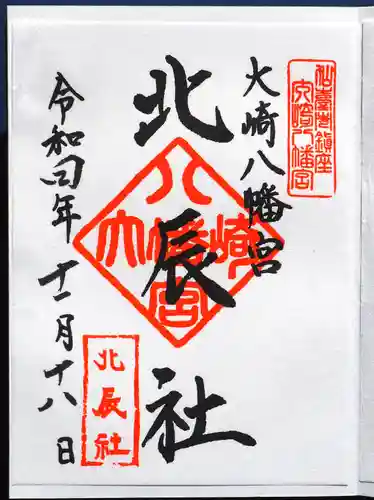 仙臺鎮座
大崎八幡宮
大崎八幡宮
北辰社
大崎八幡宮
令和四年十一月十八日
北辰社